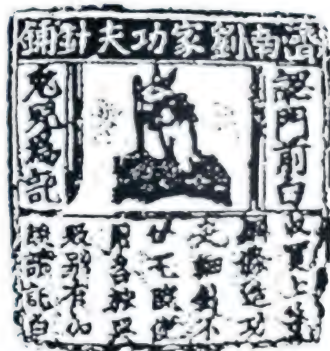 濟南劉家功夫針鋪
認門前白
兔兒爲記
收買上等
鋼條造功
夫細針不
宅
用
別有加
請記白